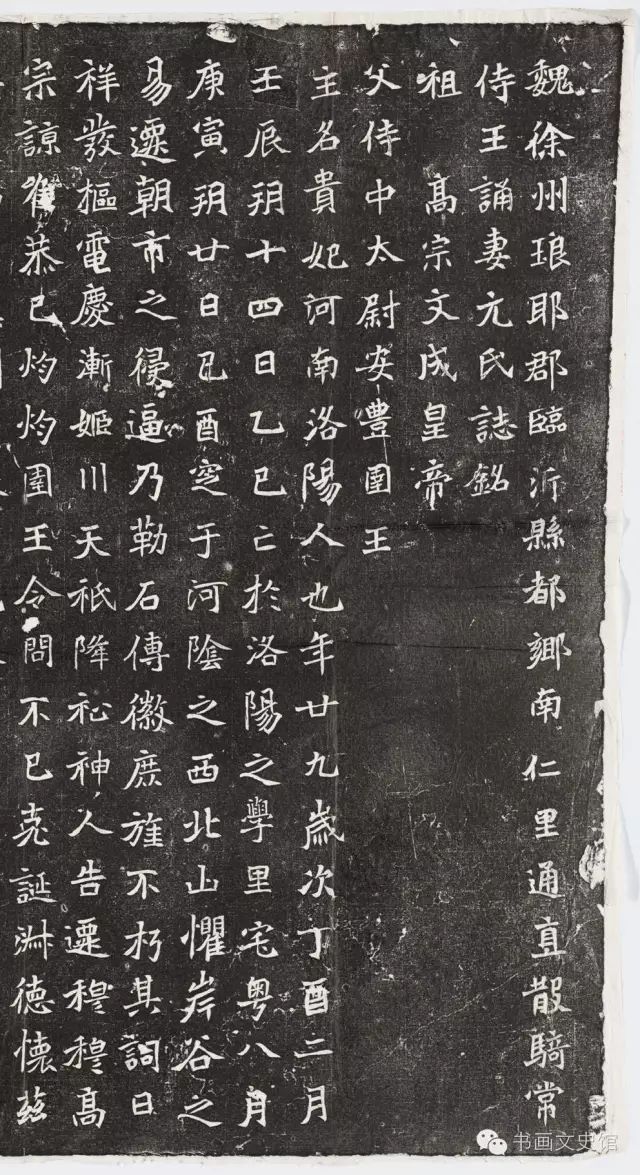 魏徐州琅耶郡臨沂縣都鄉南仁里通直散騎常
侍王誦妻元氏誌銘
祖高宗文成皇帝
父侍中太尉安豐圉王
主名貴妃河南洛陽人也年廿九歲次丁酉二月
壬辰玥十四日乙巳亡於洛陽之學里宅粵八月
庚寅玥廿日己酉窆于河陰之西北山懼岸谷之
易遷朝市之侵逼乃勒石傳徽庶旌不朽其詞曰
祥發樞電慶漸姬川天祇降祉神人告遷穆穆高
宗諒隹恭己灼灼圉王令問不已克誕淋德懷茲
书画文史馆